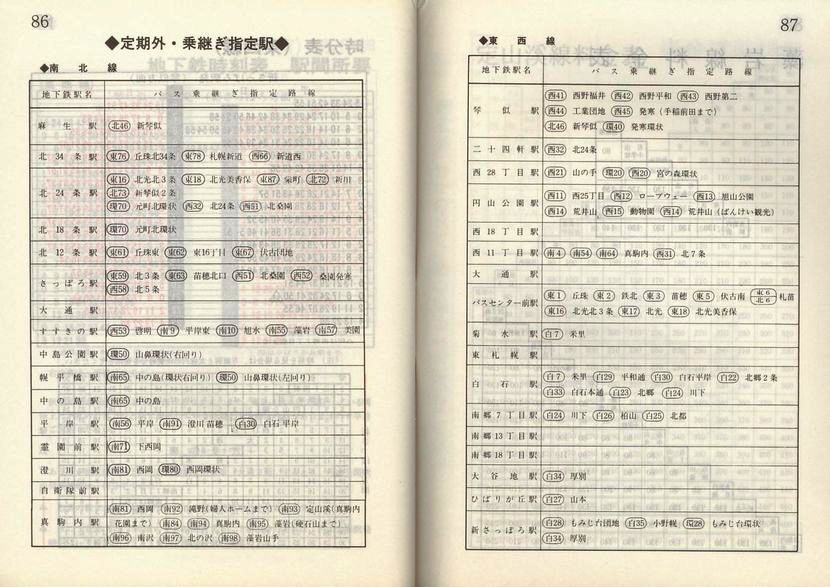 86
◆定期外・乗継ぎ指定駅◆
◆南北線
地下鉄駅名 バス乗継ぎ指定路線
麻生駅 北46 新琴似
北34条駅 東76 丘珠北34条 東78 札幌新道 西66 新道西
北24条駅 東16 北光北3条 東18 北光美香保 東87 栄町 北72 新川
北73 新琴似2条
環70 元町北環状 西32 北24条 西51 北桑園
北18条駅 環70 元町北環状
北12条駅 東61 丘珠東 東62 東16丁目 東67 伏古団地
さっぽろ駅 東59 北3条 東63 苗穂北口 西51 北桑園 西52 桑園発寒
西58 北5条
大通駅
すすきの駅 西53 啓明 南9 平岸東 南10 旭水 南55 藻岩 南57 美園
中島公園駅 環50 山鼻環状(右回り)
幌平橋駅 南65 中の島(環状右回り) 環50 山鼻環状(左回り)
中の島駅 南65 中の島
平岸駅 南56 平岸 南91 澄川苗穂 白30 白石平岸
霊園前駅 南71 下西岡
澄川駅 南81 西岡 環80 西岡環状
自衛隊前駅
真駒内駅 南81 西岡 南92 滝野(婦人ホームまで) 南93 定山渓(真駒内
花園まで) 南84 南94 真駒内 南95 藻岩(硬石山まで)
南96 南沢 南97 北の沢 南98 藻岩山手
87
◆東西線
地下鉄駅名 バス乗継ぎ指定路線
琴似駅 西41 西野福井 西42 西野平和 西43 西野第二
西44 工業団地 西45 発寒(手稲前田まで)
北46 新琴似 環40 発寒環状
二十四軒駅 西32 北24条
西28丁目駅 西21 山の手 環20 西20 宮の森環状
円山公園駅 西11 西25丁目 西12 ロープウェー 西13 旭山公園
西14 荒井山 西15 動物園 西14 荒井山(ばんけい観光)
西18丁目駅
西11丁目駅 南4 南54 南64 真駒内 西31 北7条
大通駅
バスセンター前駅 東1 丘珠 東2 鉄北 東3 苗穂 東5 伏古南 東6 北6 札苗
東16 北光北3条 東17 北光 東18 北光美香保
菊水駅 白7 米里
東札幌駅
白石駅 白7 米里 白29 平和通 白30 白石平岸 白22 北郷2条
白33 白石本通 白23 北郷 白24 川下
南郷7丁目駅 白24 川下 白26 柏山 白25 北都
南郷13丁目駅
南郷18丁目駅
大谷地駅 白34 厚別
ひばりが丘駅 白27 山本
新さっぽろ駅 白28 もみじ台団地 白35 小野幌 環28 もみじ台環状
白34 厚別